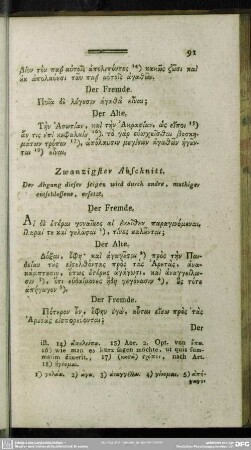 91
Δέον τὸν παρ' αὐτοῖς ἀπολιπόντες 14) κακῶς ζῶσι καὶ
ἐκ ἀπολαύουσι τῶν παρ' αὐτοῖς ἀγαθῶν.
Der Fremde.
Ποῖα δὲ λέγουσιν ἀγαθὰ εἶναι;
Der Alte.
Τὴν Ἀσωτίαν, καὶ τὴν Ἀκρασίαν, ὡς εἴποι 15)
ἄν τις ἐπὶ κεφαλαίῳ 16). τὸ γὰρ εὐωχεῖσθαι βοσκη-
μάτων τρόπον 17), ἀπόλαυσιν μεγίστων ἀγαθῶν ἡγῶν-
ται 18) εἶναι.
Zwanzigster Abschnitt.
Der Abgang dieser feigen wird durch andre, muthiger
entschlossene, ersetzt.
Der Fremde.
Αἱ δὲ ἕτεραι γυναῖκες αἱ ἐκεῖθεν παραγινόμεναι,
ἱλαραί τε καὶ γελῶσαι 1), τίνες καλῶνται;
Der Alte.
Δόξαι, ἔφη· καὶ ἀγαγῦσαι 2) πρὸς τὴν Παι-
δείαν τὺς εἰσελθόντας πρὸς τὰς Ἀρετὰς, ἀνα-
κάμπτουσιν, ὅπως ἑτέρυς ἀγάγωσι· καὶ ἀναγγείλω-
σιν 3), ὅτι εὐδαίμονες ἤδη γεγόνασιν 4), ὃς τότε
ἀπήγαγον 5).
Der Fremde.
Πότερον ὖν, ἔφην ἐγώ, αὗται εἴσω πρὸς τὰς
Ἀρετὰς εἰσπορεύονται;
Der
16) wie man es kurz sagen möchte, ut quis sum-
matim dixerit, 17) (κατὰ) τρόπον, nach Art.
18) ἡγέομαι.
1) γελάω. 2) ἄγω. 3) ἀναγγέλλω. 4) γίνομαι. 5) ἀπά-